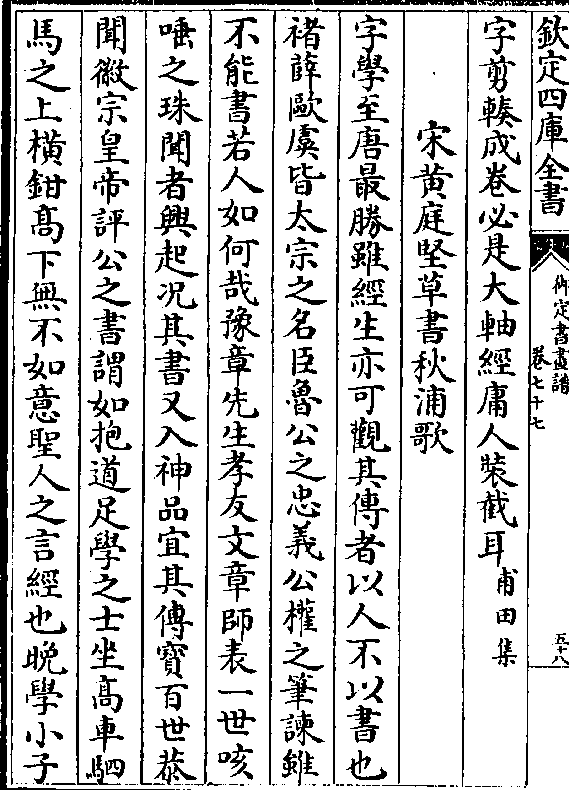 欽定四庫全書
御定書畫譜
卷七十七
五十八
字剪輳成卷必是大軸經庸人裝截耳甫田集
宋黄庭堅草書秋浦歌
字學至唐最勝雖經生亦可觀其傳者以人不以書也
褚薛歐虞皆太宗之名臣魯公之忠義公權之筆諫雖
不能書若人如何哉豫章先生孝友文章師表一世咳
唾之珠聞者興起况其書又入神品宜其傳寳百世恭
聞徽宗皇帝評公之書謂如抱道足學之士坐髙車駟
馬之上橫鉗髙下無不如意聖人之言經也晚學小子